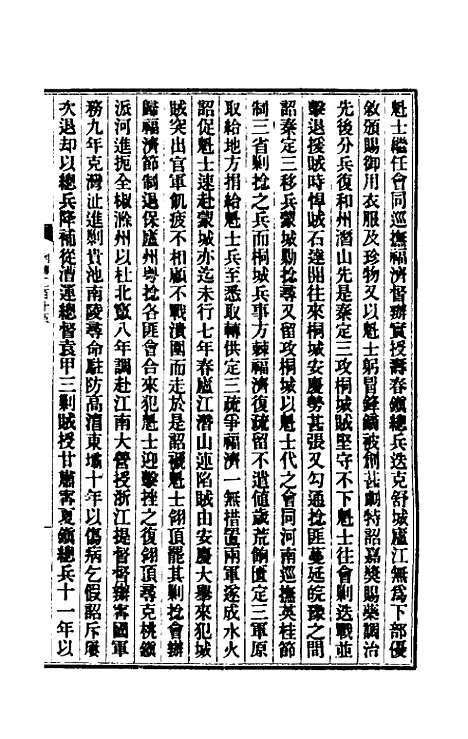 魁士繼任會同巡撫福濟督辦實授壽春鎮總兵迭克舒城廬江無為下部優
敘頒賜御用衣服及珍物又以魁士躬冒鋒鏑被創甚劇特詔嘉獎賜藥調治
先後分兵復和州潛山先是秦定三攻桐城賊堅守不下魁士往會剿迭戰並
擊退援賊時悍賊石達開往來桐城安慶勢甚張又勾通捻匪蔓延皖豫之間
詔秦定三移兵蒙城勦捻尋又留攻桐城以魁士代之會同河南巡撫英桂節
制三省剿捻之兵而桐城兵事方棘福濟復疏留不遣值歲荒餉匱定三軍原
取給地方捐給魁士兵至悉取轉供定三疏爭福濟一無措置兩軍遂成水火
詔促魁士速赴蒙城亦迄未行七年春廬江潛山連陷賊由安慶大舉來犯城
賊突出官軍飢疲不相顧不戰潰圍而走於是詔褫魁士翎頂罷其剿捻會辦
歸福濟節制退保廬州粵捻各匪會合來犯魁士迎擊挫之復翎頂尋克桃鎮
派河進扼全椒滁州以杜北竄八年調赴江南大營授浙江提督督辦甯國軍
務九年克灣沚進剿貴池南陵尋命駐防高淳東壩十年以傷病乞假詔斥廢
次退却以總兵降補從漕運總督袁甲三剿賊授甘肅甯夏鎮總兵十一年以